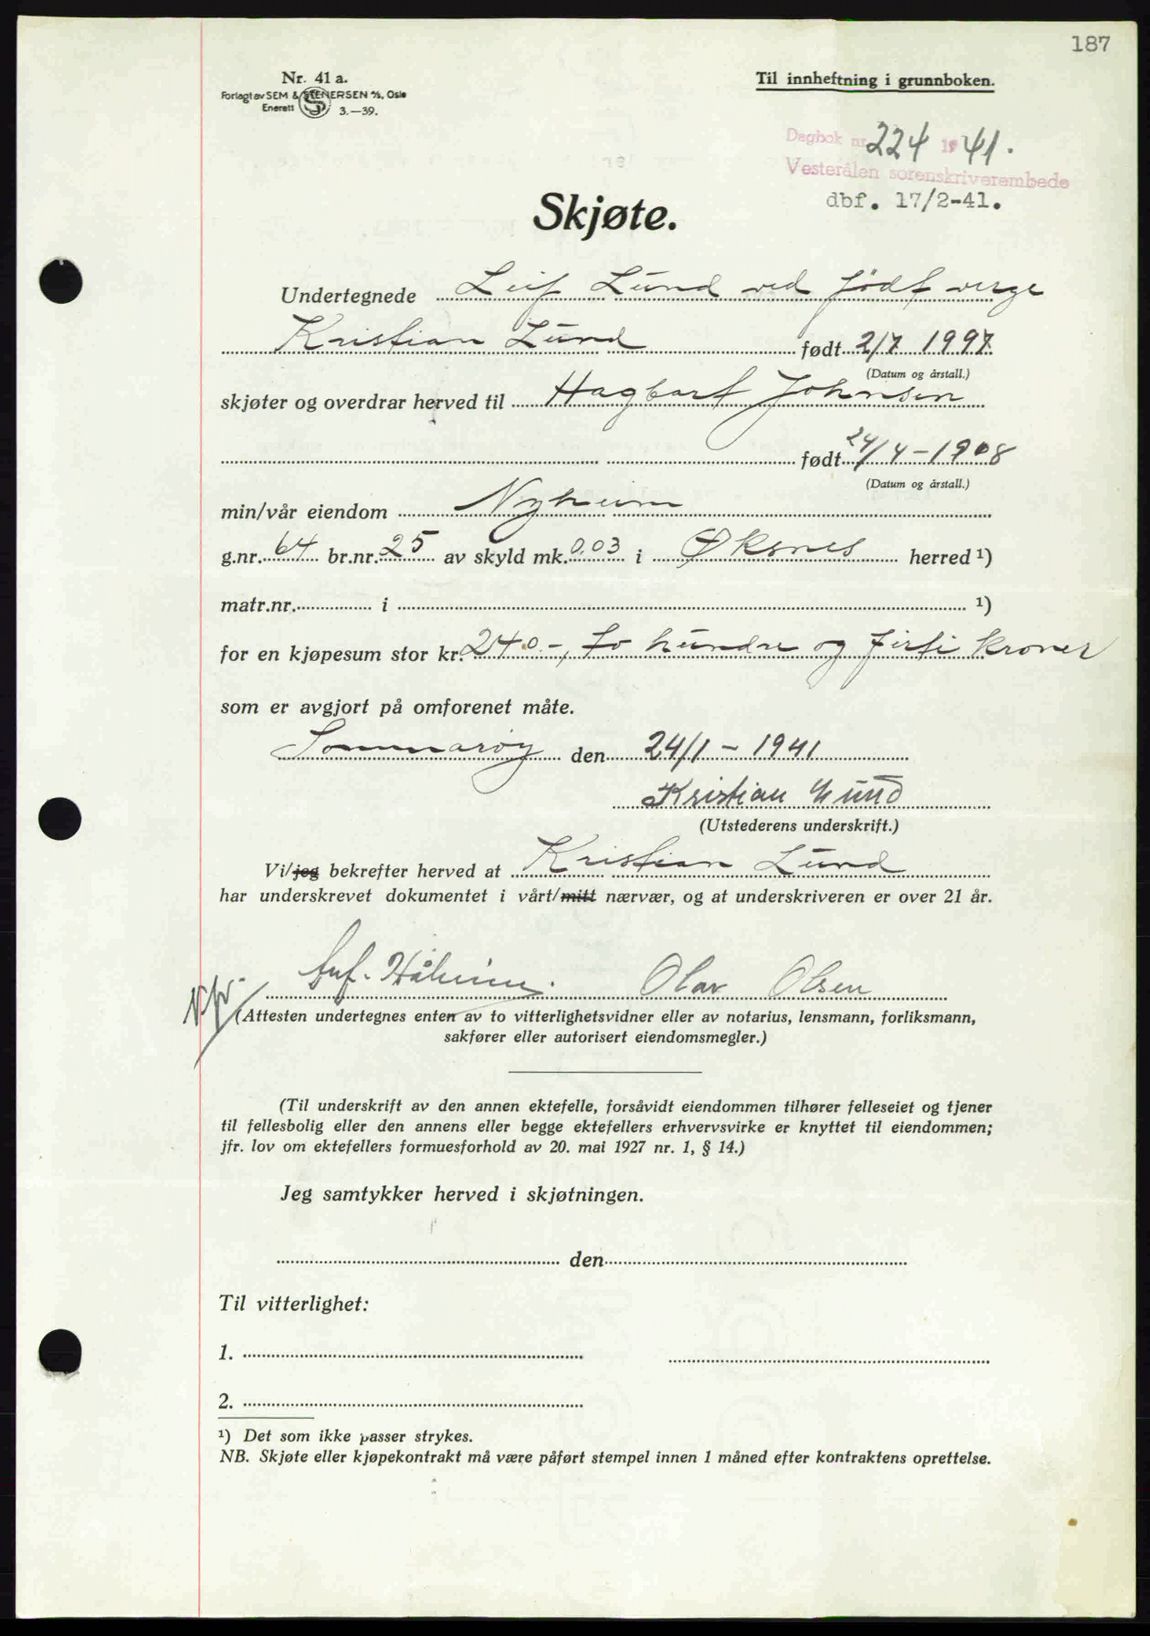 187
Nr. 41 a.
Forlagt av SEM & STENERSEN A/S, Oslo
Enerett 3.—39.
Til innheftning i grunnboken.
Dagbok nr. 224 1941.
Vesterålen sorenskriverembede
dbf. 17/2-41.
Skjøte.
Undertegnede Leif Lund ved født verge
Kristian Lund født 2/7 1997
(Datum og årstall.)
skjøter og overdrar herved til Hagbart Johnsen
født 24/4-1908
(Datum og årstall.)
min/vår eiendom Nyheim
g.nr. 64 br.nr. 25 av skyld mk. 0.03 i Øksnes herred ¹)
matr.nr. i ¹)
for en kjøpesum stor kr. 240.-, to hundre og firti kroner
som er avgjort på omforenet måte.
Sommarøy den 24/1-1941
Kristian Lund
(Utstederens underskrift.)
Vi/jeg bekrefter herved at Kristian Lund
har underskrevet dokumentet i vårt/mitt nærvær, og at underskriveren er over 21 år.
Olav Olsen
(Attesten undertegnes enten av to vitterlighetsvidner eller av notarius, lensmann, forliksmann,
sakfører eller autorisert eiendomsmegler.)
(Til underskrift av den annen ektefelle, forsåvidt eiendommen tilhører felleseiet og tjener
til fellesbolig eller den annens eller begge ektefellers erhvervsvirke er knyttet til eiendommen;
jfr. lov om ektefellers formuesforhold av 20. mai 1927 nr. 1, § 14.)
Jeg samtykker herved i skjøtningen.
den
Til vitterlighet:
1.
2.
¹) Det som ikke passer strykes.
NB. Skjøte eller kjøpekontrakt må være påført stempel innen 1 måned efter kontraktens oprettelse.